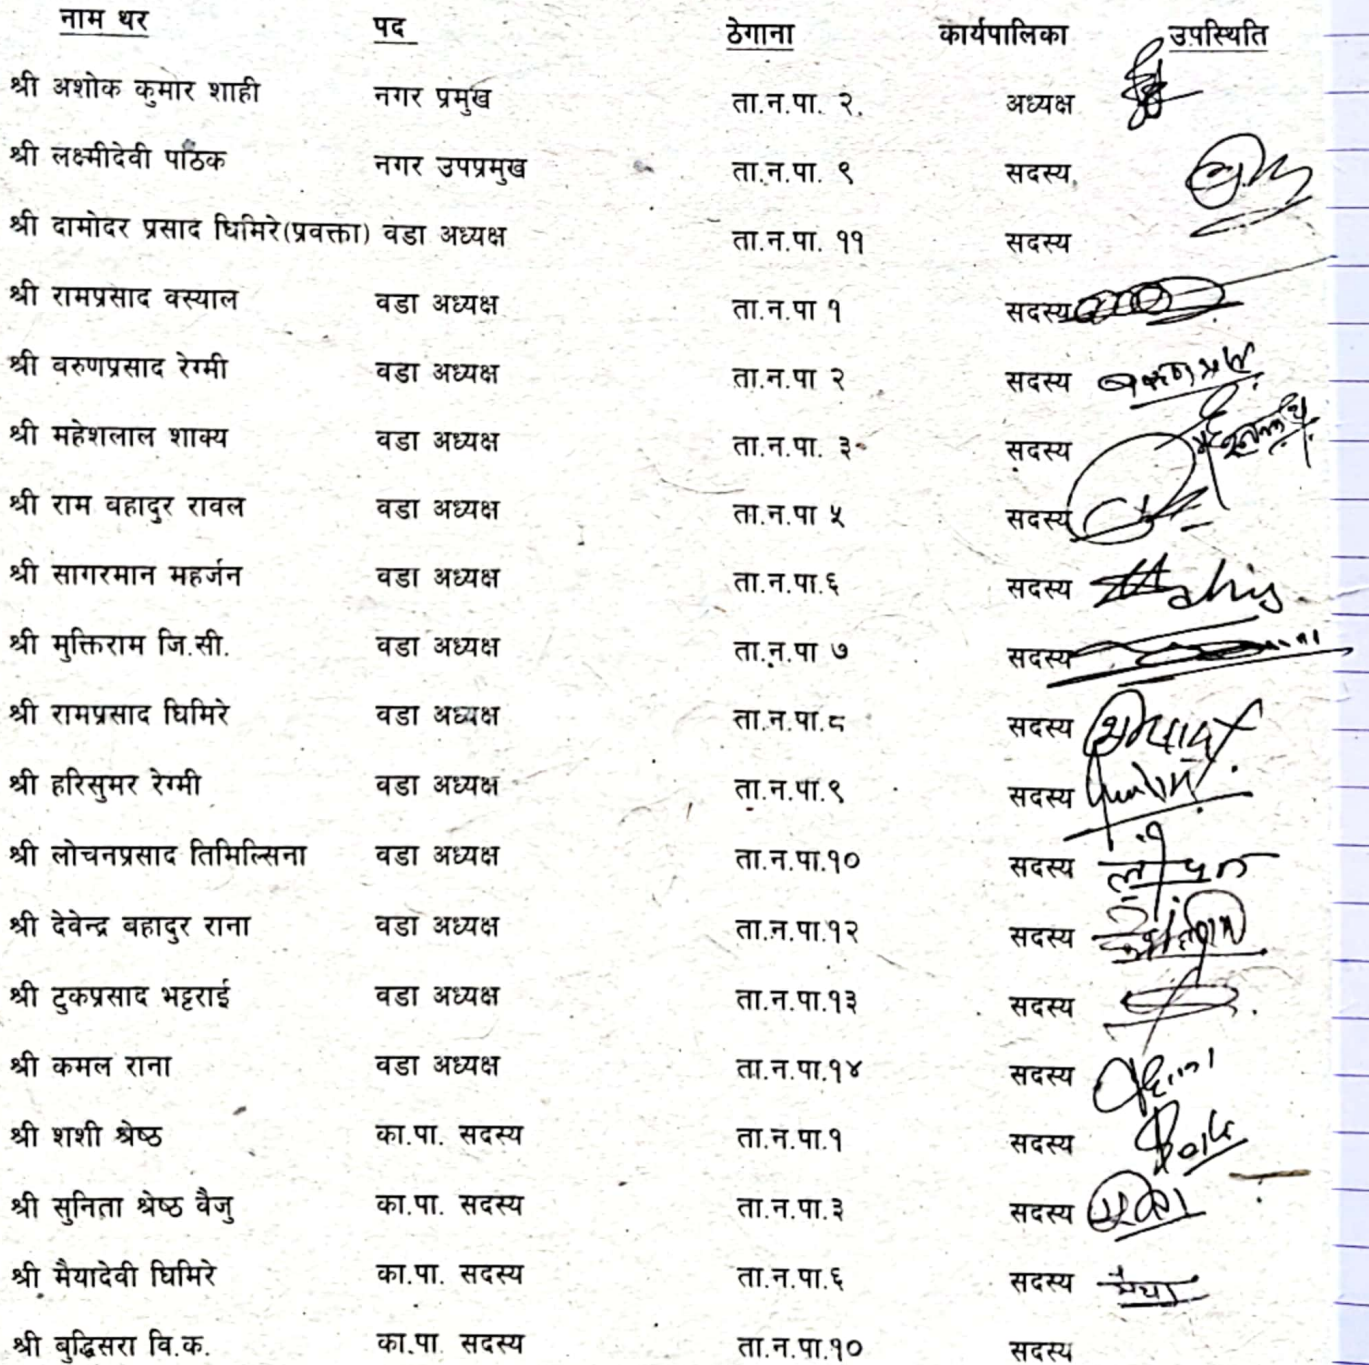 नाम थर पद ठेगाना कार्यपालिका उपस्थिति
श्री अशोक कुमार शाही नगर प्रमुख ता.न.पा. २. अध्यक्ष
श्री लक्ष्मीदेवी पाठक नगर उपप्रमुख ता.न.पा. ९ सदस्य
श्री दामोदर प्रसाद घिमिरे(प्रवक्ता) वडा अध्यक्ष ता.न.पा. ११ सदस्य
श्री रामप्रसाद वस्याल वडा अध्यक्ष ता.न.पा १ सदस्य
श्री वरुणप्रसाद रेग्मी वडा अध्यक्ष ता.न.पा २ सदस्य
श्री महेशलाल शाक्य वडा अध्यक्ष ता.न.पा. ३ सदस्य
श्री राम वहादुर रावल वडा अध्यक्ष ता.न.पा ५ सदस्य
श्री सागरमान महर्जन वडा अध्यक्ष ता.न.पा.६ सदस्य
श्री मुक्तिराम जि.सी. वडा अध्यक्ष ता.न.पा ७ सदस्य
श्री रामप्रसाद घिमिरे वडा अध्यक्ष ता.न.पा.८ सदस्य
श्री हरिसुमर रेग्मी वडा अध्यक्ष ता.न.पा.९ सदस्य
श्री लोचनप्रसाद तिमिल्सिना वडा अध्यक्ष ता.न.पा.१० सदस्य
श्री देवेन्द्र बहादुर राना वडा अध्यक्ष ता.न.पा.१२ सदस्य
श्री टुकप्रसाद भट्टराई वडा अध्यक्ष ता.न.पा.१३ सदस्य
श्री कमल राना वडा अध्यक्ष ता.न.पा.१४ सदस्य
श्री शशी श्रेष्ठ का.पा. सदस्य ता.न.पा.१ सदस्य
श्री सुनिता श्रेष्ठ वैजु का.पा. सदस्य ता.न.पा.३ सदस्य
श्री मैयादेवी घिमिरे का.पा. सदस्य ता.न.पा.६ सदस्य मैया
श्री बुद्धिसरा वि.क. का.पा. सदस्य ता.न.पा.१० सदस्य